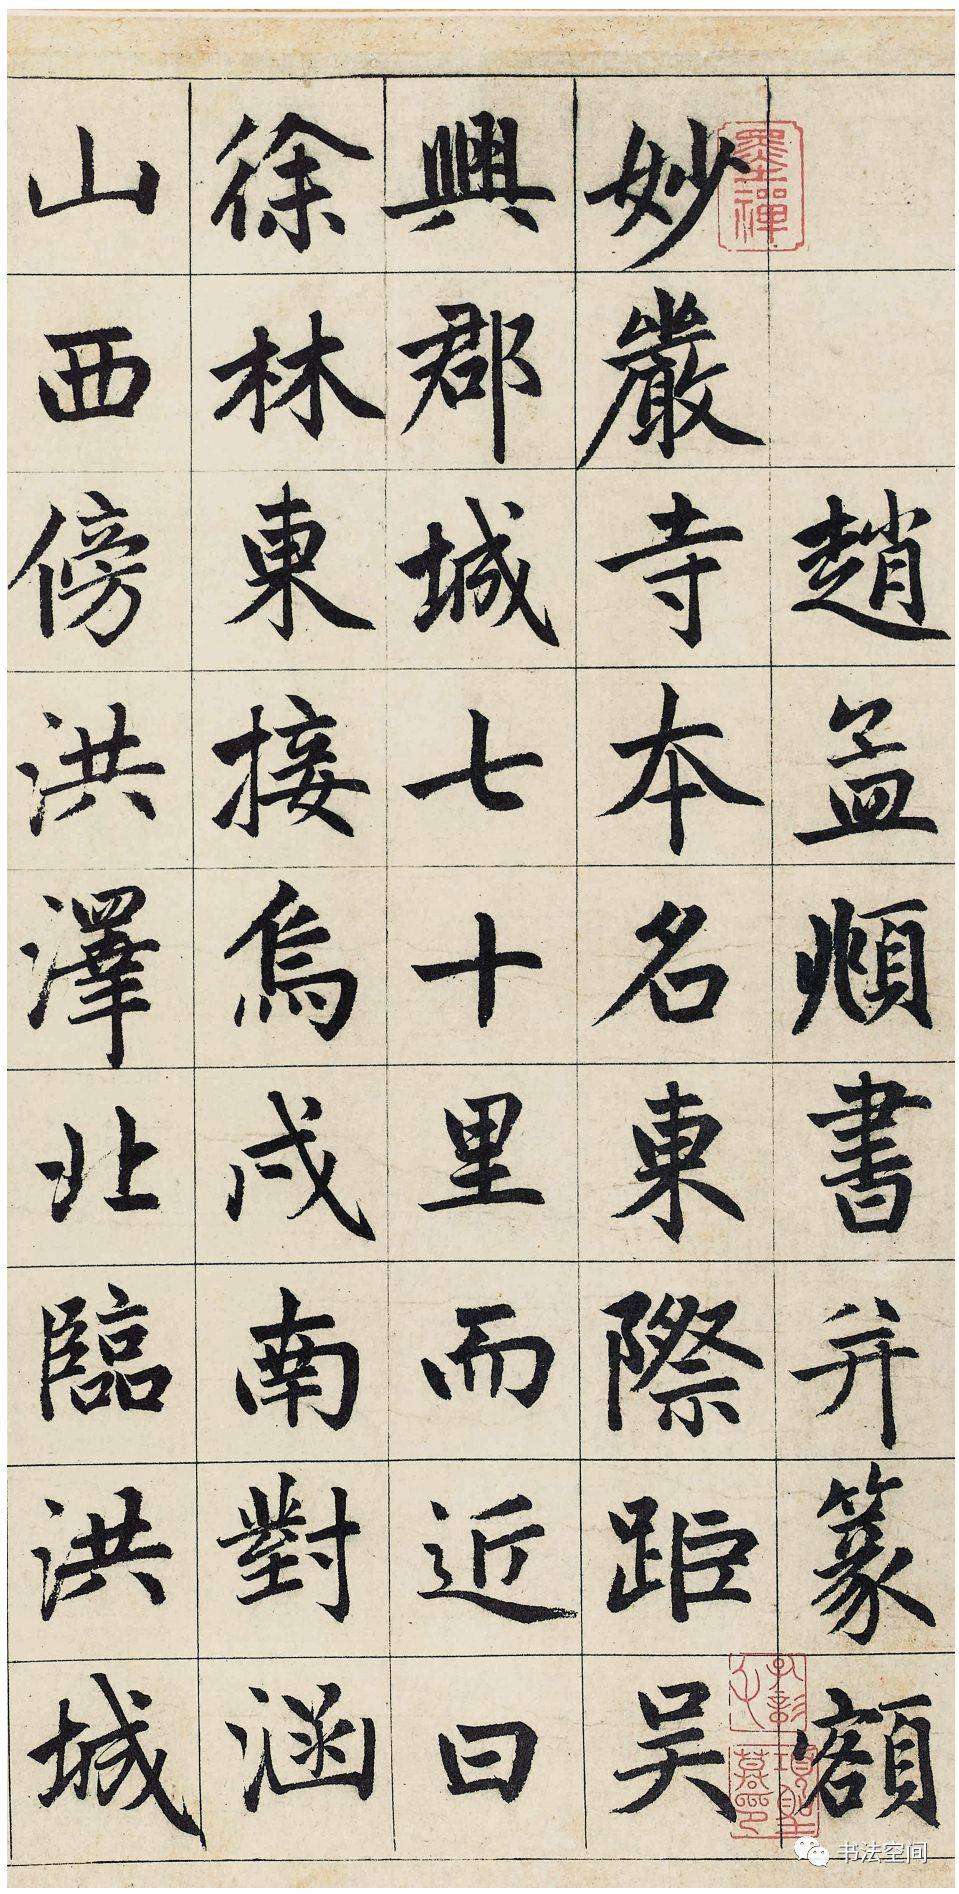 趙孟頫書并篆額
妙嚴寺本名東際距吴
興郡城七十里而近曰
徐林東接烏戍南對涵
山西傍洪澤北臨洪城
墨禪
书法空间